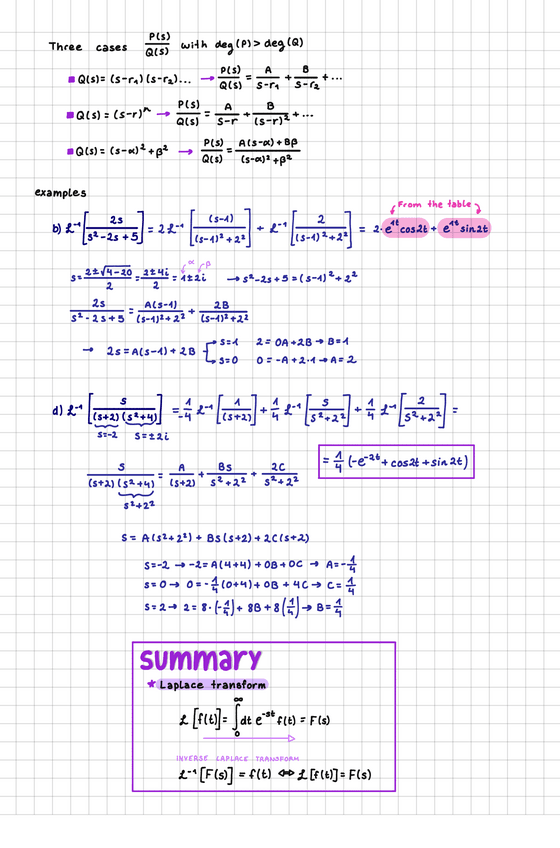 Three cases P(s)/Q(s) with deg(P) > deg(Q)
■ Q(s) = (s-r₁)(s-r₂)... → P(s)/Q(s) = A/(s-r₁) + B/(s-r₂) + ...
■ Q(s) = (s-r)ⁿ → P(s)/Q(s) = A/(s-r) + B/(s-r)² + ...
■ Q(s) = (s-α)² + β² → P(s)/Q(s) = (A(s-α) + Bβ)/((s-α)² + β²)
examples
From the table
b) ℒ⁻¹[2s/(s²-2s+5)] = 2ℒ⁻¹[(s-1)/((s-1)²+2²)] + ℒ⁻¹[2/((s-1)²+2²)] = 2·e¹ᵗcos2t + e¹ᵗsin2t
α β
s = (2±√(4-20))/2 = (2±4i)/2 = 1±2i → s²-2s+5 = (s-1)² + 2²
2s/(s²-2s+5) = A(s-1)/((s-1)²+2²) + 2B/((s-1)²+2²)
→ 2s = A(s-1) + 2B
s=1 2 = 0A + 2B → B=1
s=0 0 = -A + 2·1 → A=2
d) ℒ⁻¹[s/((s+2)(s²+4))] = 1/-4 ℒ⁻¹[1/(s+2)] + 1/4 ℒ⁻¹[s/(s²+2²)] + 1/4 ℒ⁻¹[2/(s²+2²)] =
s=-2 s=±2i
= 1/4 (-e⁻²ᵗ + cos2t + sin2t)
s/((s+2)(s²+4)) = A/(s+2) + Bs/(s²+2²) + 2C/(s²+2²)
s²+2²
s = A(s²+2²) + Bs(s+2) + 2C(s+2)
s=-2 → -2 = A(4+4) + 0B + 0C → A = -1/4
s=0 → 0 = -1/4(0+4) + 0B + 4C → C = 1/4
s=2 → 2 = 8·(-1/4) + 8B + 8(1/4) → B = 1/4
summary
★ Laplace transform
ℒ[f(t)] = ∫₀^∞ dt e⁻ˢᵗ f(t) = F(s)
INVERSE LAPLACE TRANSFORM
ℒ⁻¹[F(s)] = f(t) ⇔ ℒ[f(t)] = F(s)